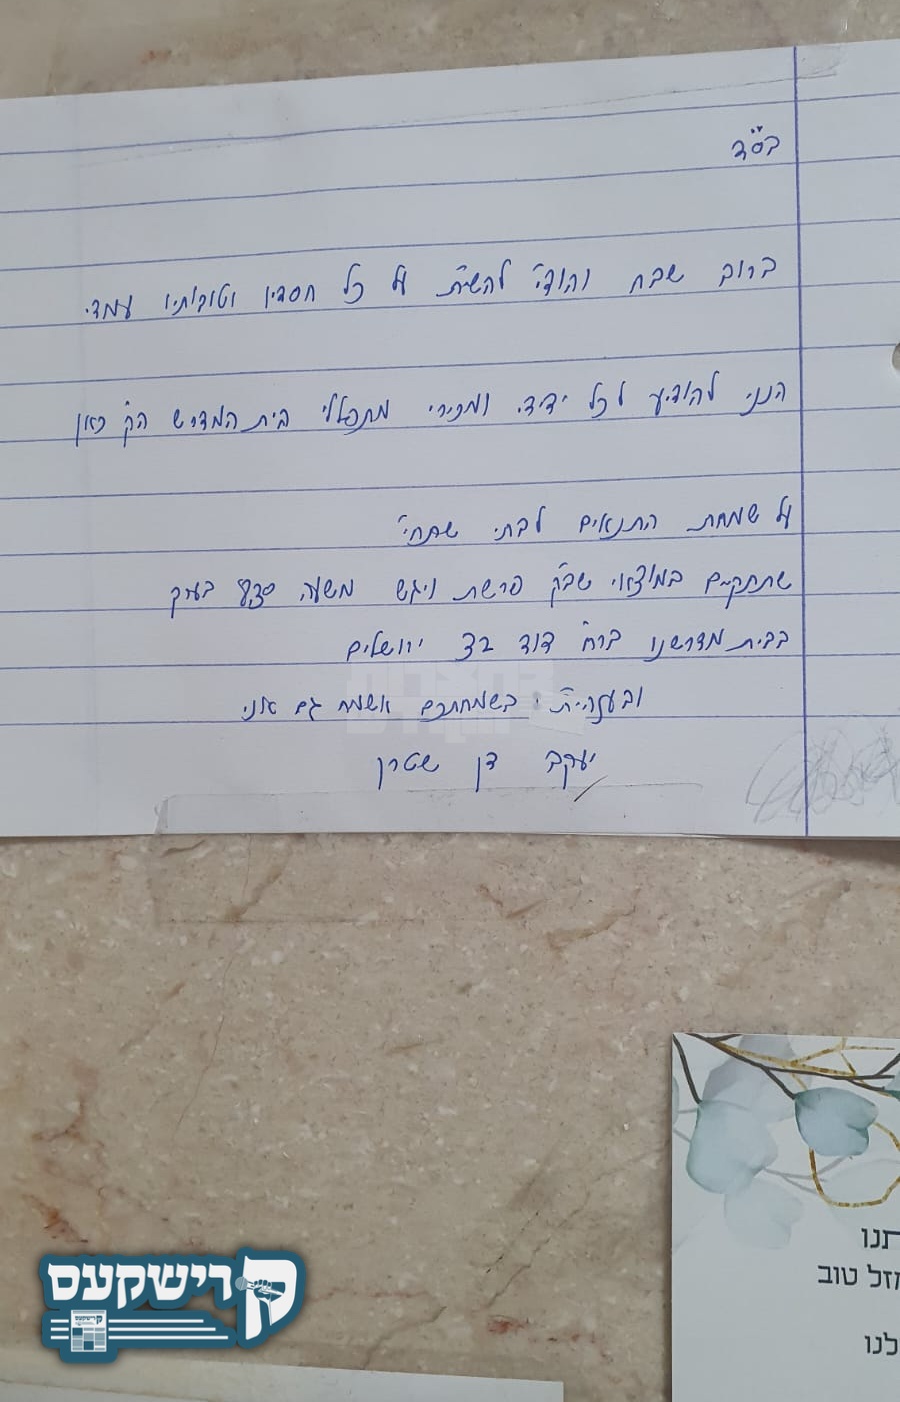 בס"ד
ברוב שבח והודי' להשי"ת על כל חסדיו וטובותיו עמדי.
הנני להודיע לכל ידידי ומכירי מתפללי בית המדרש הק' כאן
על שמחת התנאים לבתי שתחי'
שתתקיים במוצאי שב"ק פרשת ויגש משעה בערך
בבית מדרשנו ברח' דוד ירושלים
ובעזהי"ת בשמחתכם אשמח גם אני
יעקב דן שטרן
תנו
מזל טוב
לנו
קרישקעס